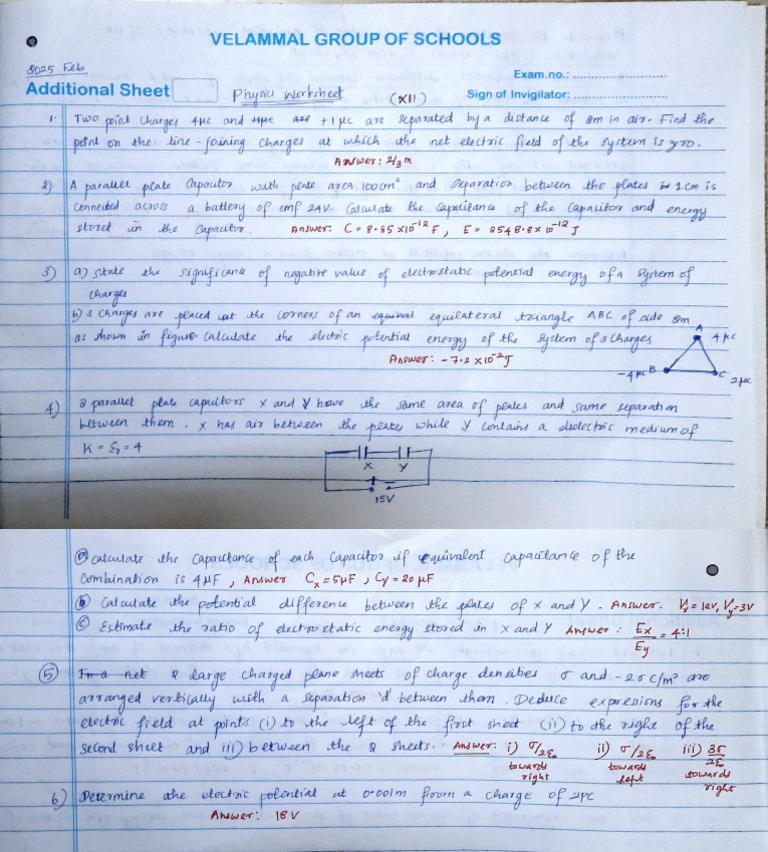 VELAMMAL GROUP OF SCHOOLS
2025 Feb
Exam.no.: ............................
Additional Sheet Physics Worksheet (XII) Sign of Invigilator: ............................
1. Two point Charges 4μc and +1μc are separated by a distance of 2m in air. Find the
point on the line-joining charges at which the net electric field of the system is zero.
Answer: 2/3 m
2) A parallel plate Capacitor with plate area 100cm² and separation between the plates is 1cm is
connected across a battery of emf 24V. Calculate the Capacitance of the Capacitor and energy
stored in the Capacitor. Answer: C = 8.85×10⁻¹² F, E = 2548.8×10⁻¹² J
3) a) State the significance of negative value of electrostatic potential energy of a System of
charges
b) 3 Charges are placed at the corners of an equilateral triangle ABC of side 2m
as shown in figure Calculate the electric potential energy of the System of 3 Charges
Answer: -7.2 × 10⁻² J
A 4μc
-4μc B C 2μc
4) 2 parallel plate capacitors X and Y have the same area of plates and same separation
between them. X has air between the plates while Y contains a dielectric medium of
K = εr = 4
X Y
15V
(a) Calculate the Capacitance of each Capacitor if equivalent capacitance of the
Combination is 4μF, Answer Cx = 5μF, Cy = 20μF
(b) Calculate the potential difference between the plates of X and Y. Answer. Vx = 12V, Vy = 3V
(c) Estimate the ratio of electrostatic energy stored in X and Y Answer: Ex/Ey = 4:1
(5) In a net 2 large charged plane sheets of charge densities σ and -2σ C/m² are
arranged vertically with a separation 'd' between them. Deduce expressions for the
electric field at points (i) to the left of the first sheet (ii) to the right of the
second sheet and iii) between the 2 sheets. Answer: i) σ/2ε₀ towards right ii) σ/2ε₀ towards left iii) 3σ/2ε₀ towards right
6) Determine the electric potential at 0.001m from a charge of 2pc
Answer: 18V